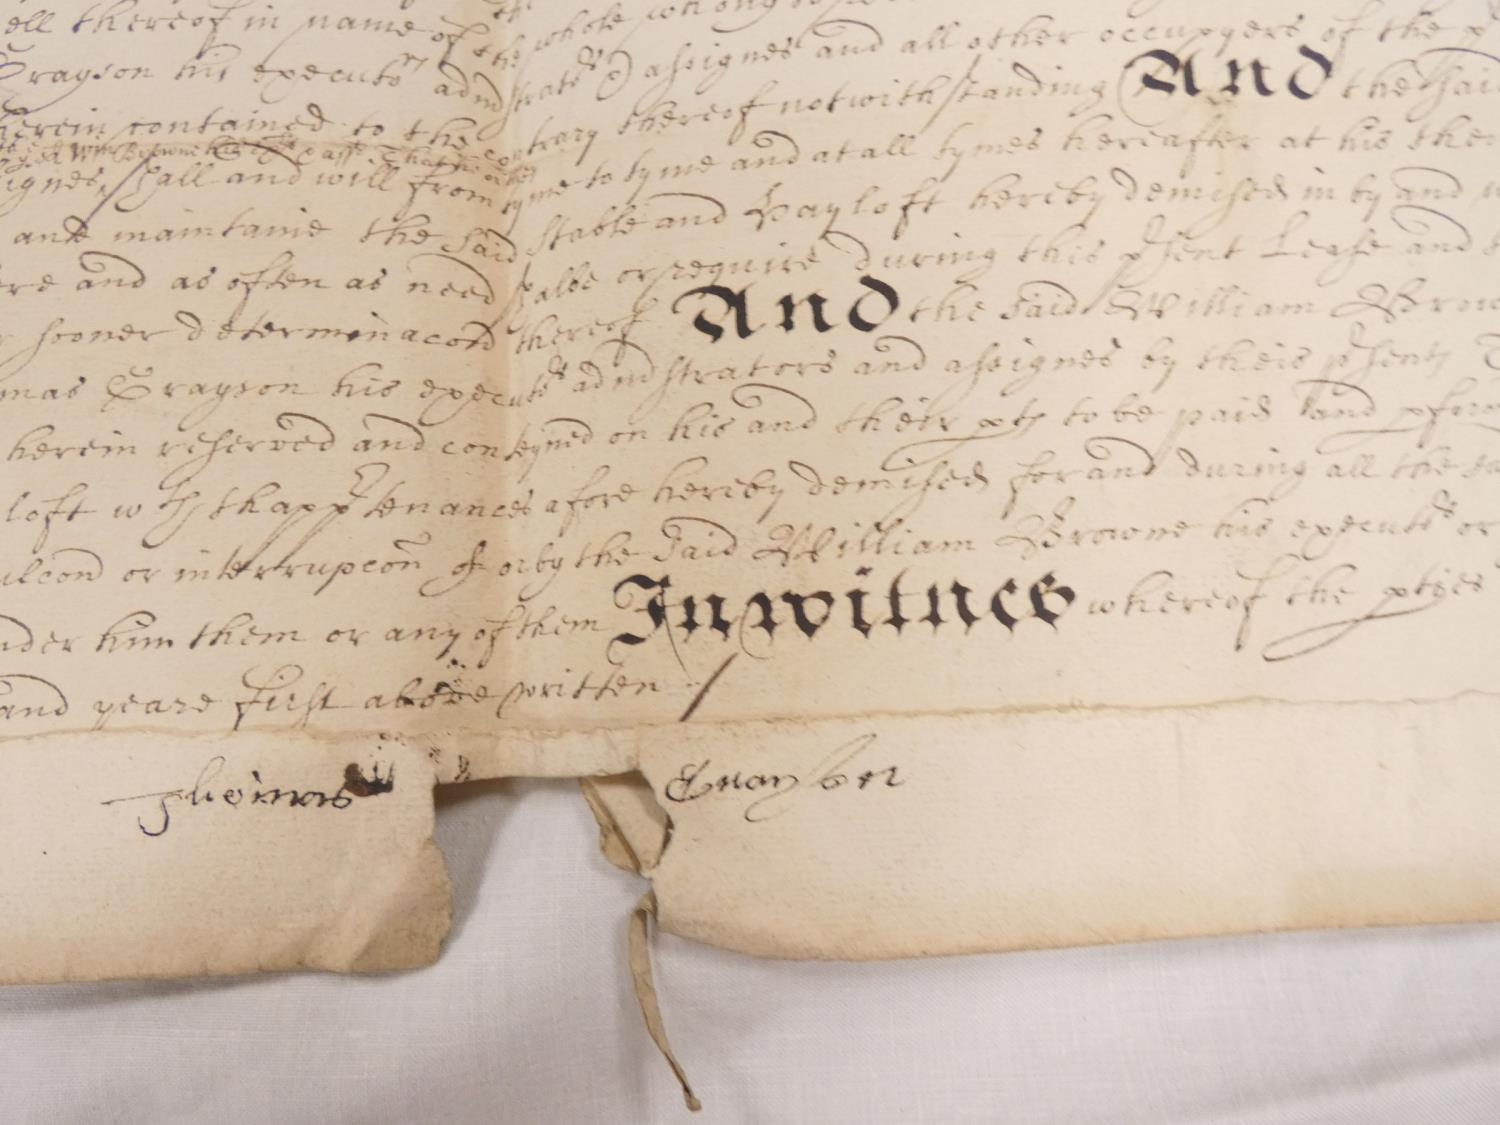 ell thereof in name of the whole
Grayson his execut'rs adm'strat'rs & assignes and all other occupyers of the
herein contained to the contrary thereof notwithstanding And the said
assignes, shall and will from tyme to tyme and at all tymes hereafter at his
and maintaine the said stable and Hayloft hereby demised in by and
ere and as often as need shalbe or require during this p'sent Lease and
r sooner determinacon thereof And the said William Browne
omas Grayson his execut'rs adm'strators and assignes by theis p'sents
herein reserved and conteyned on his and their p'ts to be paid and p'form
loft w'th thapp'tenances afore hereby demised for and during all the
or interrupcon of or by the said William Browne his execut'rs or
nder him them or any of them In witnes whereof the p'tyes
and yeare first above written
Thomas Grayson